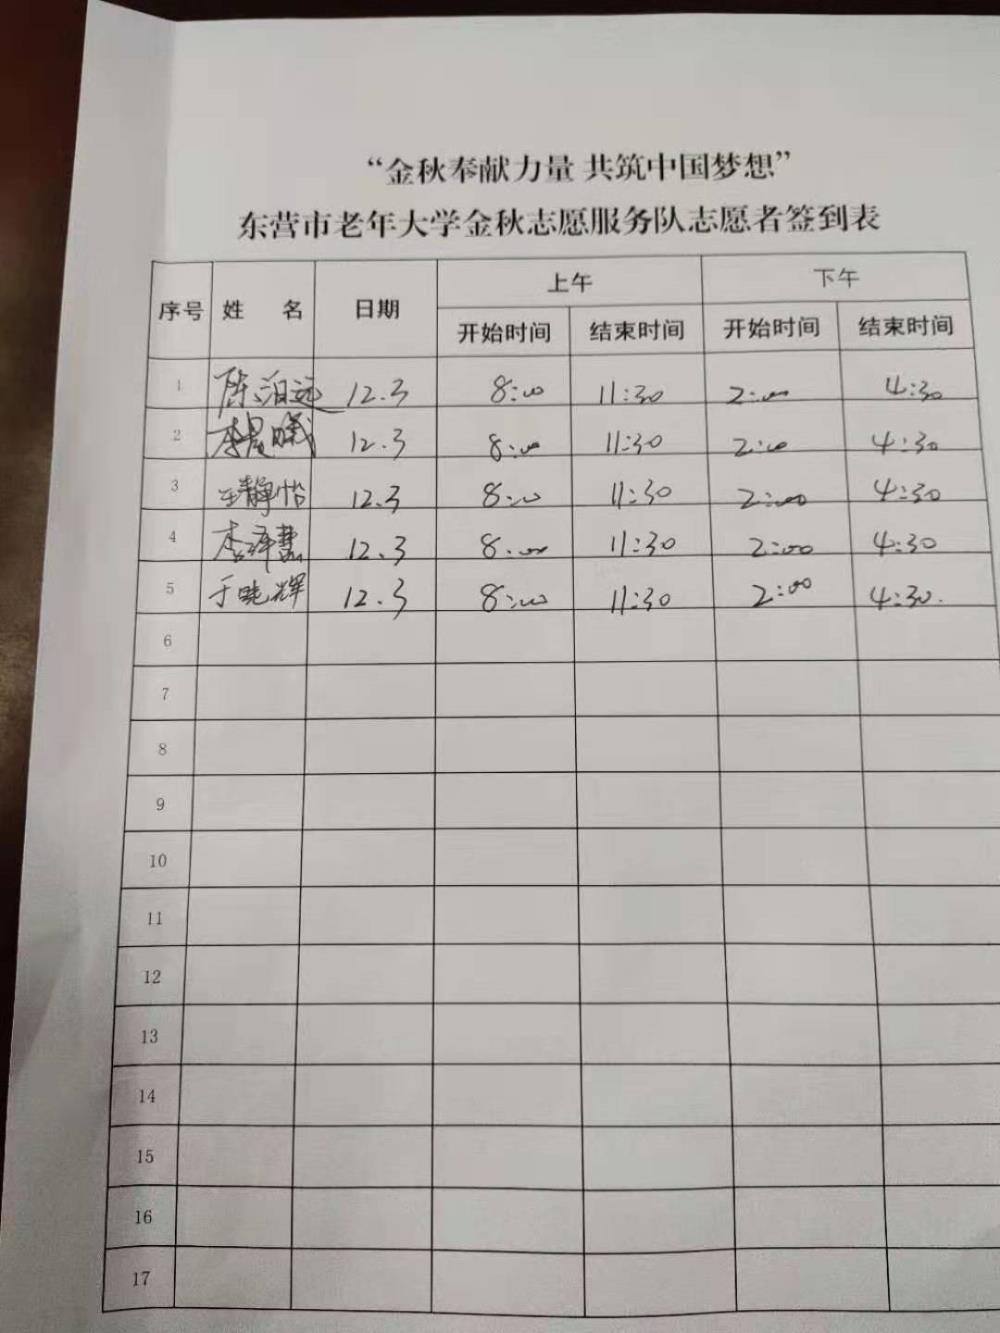 “金秋奉献力量 共筑中国梦想”
东营市老年大学金秋志愿服务队志愿者签到表
序号 姓 名 日期 上午 下午
开始时间 结束时间 开始时间 结束时间
1 陈泊远 12.3 8:00 11:30 2:00 4:30
2 李晨曦 12.3 8:00 11:30 2:00 4:30
3 王静怡 12.3 8:00 11:30 2:00 4:30
4 李泽慧 12.3 8:00 11:30 2:00 4:30
5 于晓辉 12.3 8:00 11:30 2:00 4:30.
6
7
8
9
10
11
12
13
14
15
16
17